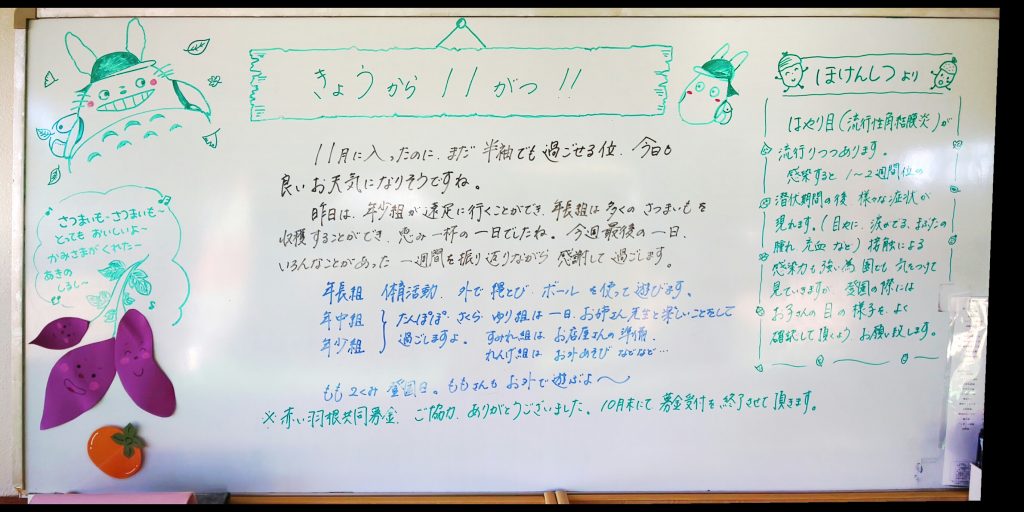 きょうから 11がつ!!
11月に入ったのに、まだ半袖でも過ごせる位、今日も
良いお天気になりそうですね。
昨日は、年少組が遠足に行くことができ、年長組は多くのさつまいもを
収穫することができ、恵み一杯の一日でしたね。今週最後の一日、
いろんなことがあった一週間を振り返りながら感謝して過ごします。
年長組 体育活動、外で縄とび、ボールを使って遊びます。
年中組 たんぽぽ・さくら・ゆり組は一日、お姉さん先生と楽しいことをして
年少組 過ごしますよ。すみれ組はお店屋さんの準備、
れんげ組はお外あそびなどなど…
もも2くみ 登園日。ももさんもお外で遊ぶよ〜
※赤い羽根共同募金、ご協力、ありがとうございました。10月末にて募金受付を終了させて頂きます。
さつまいも・さつまいも〜
とってもおいしいよ〜
かみさまがくれた〜
あきの
しるし〜
ほけんしつより
はやり目(流行性角結膜炎)が
流行りつつあります。
感染すると1〜2週間位の
潜伏期間の後 様々な症状が
現れます。(目やに、涙がでる、まぶたの
腫れ 充血 など) 接触による
感染力も強い為 園でも気をつけて
見ていきますが、登園の際には
お子さんの目の様子を、よく
確認して頂くよう お願い致します。